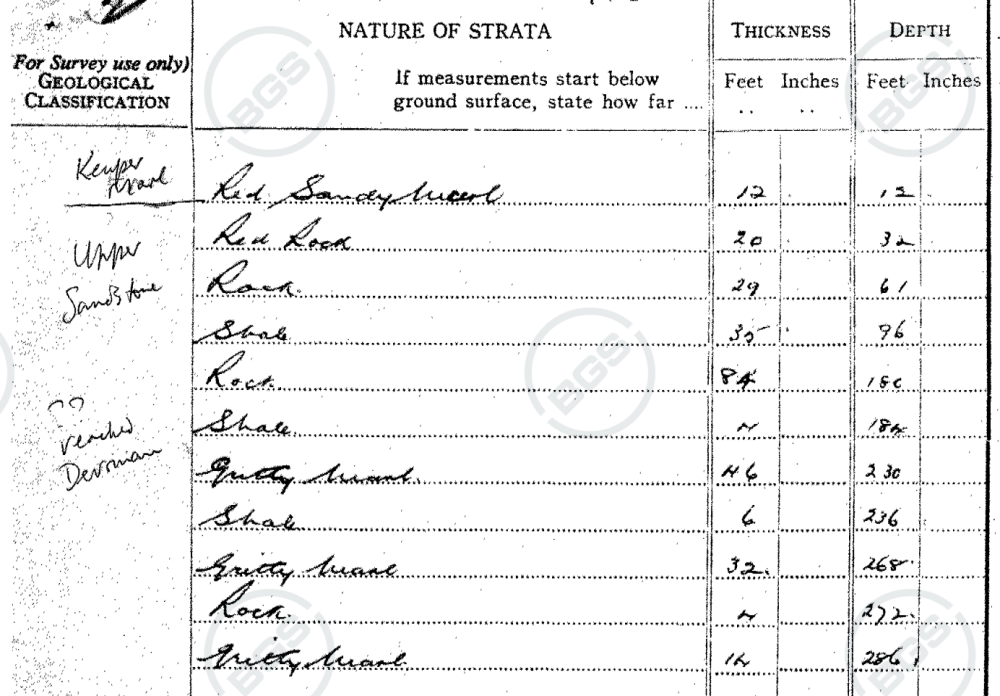 NATURE OF STRATA THICKNESS DEPTH
For Survey use only)
GEOLOGICAL
CLASSIFICATION
If measurements start below
ground surface, state how far ....
Feet Inches Feet Inches
Keuper
Marl
Red Sandy Marl 12 12
Red Rock 20 32
Upper
Sandstone
Rock 29 61
Shale 35 96
Rock 84 180
??
reached
Devonian
Shale 4 184
Gritty Marl 46 230
Shale 6 236
Gritty Marl 32 268
Rock 4 272
Gritty Marl 14 286
BGS
BGS
BGS
BGS
BGS